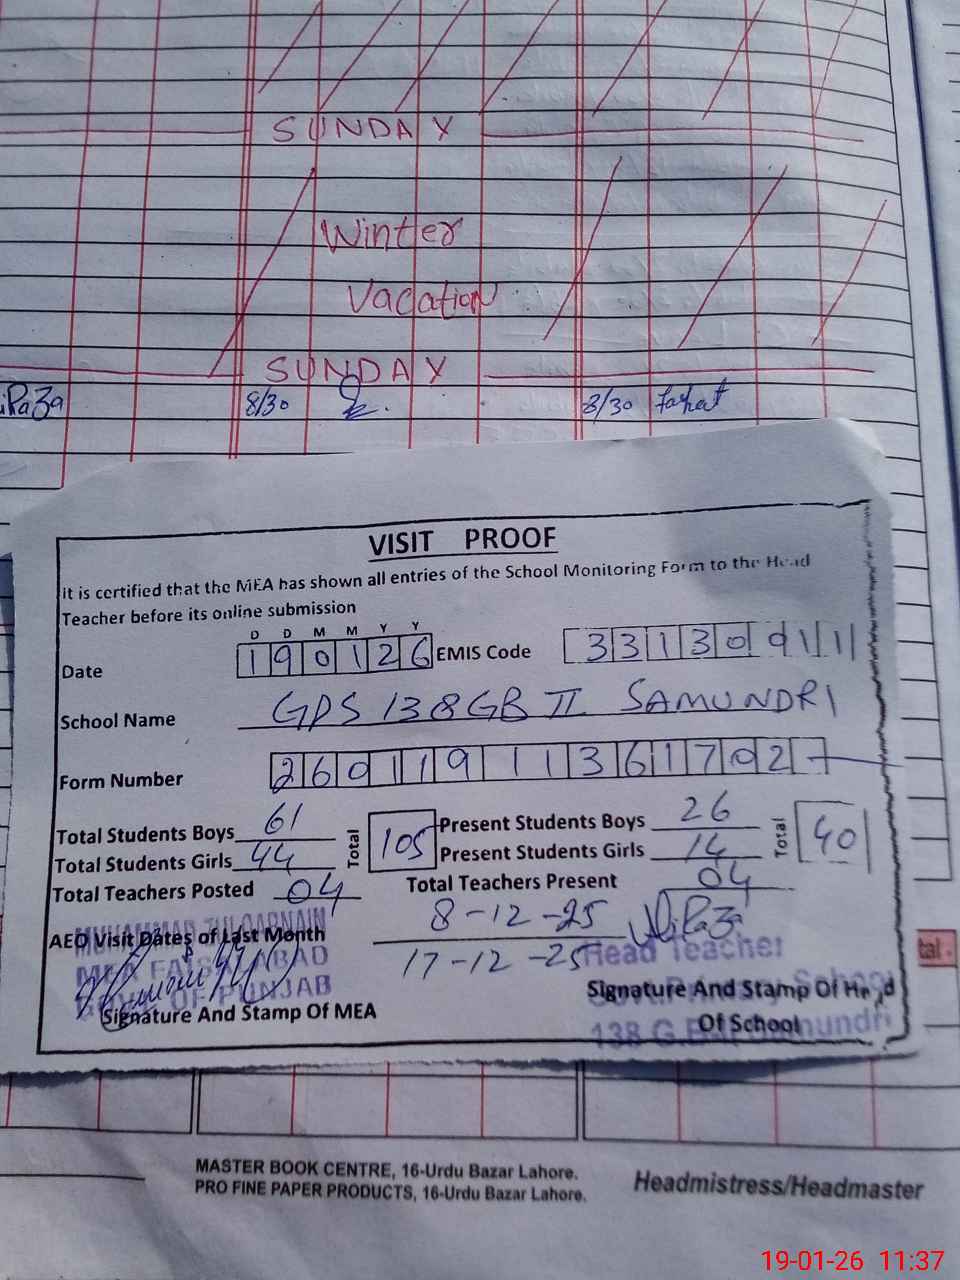 SUNDAY
Winter
Vacation
SUNDAY
8/30
8/30 Farhat
VISIT PROOF
It is certified that the MEA has shown all entries of the School Monitoring Form to the Head
Teacher before its online submission
D D M M Y Y
Date 190126 EMIS Code 33130911
School Name GPS 138GB II SAMUNDRI
Form Number 26011911361702
Total Students Boys 61 Total 105 Present Students Boys 26 Total 40
Total Students Girls 44 Present Students Girls 14
Total Teachers Posted 04 Total Teachers Present 04
AEO Visit Dates of Last Month 8-12-25
17-12-25
MUHAMMAD ZULQARNAIN
MEA FAISALABAD
OF PUNJAB
Signature And Stamp Of MEA
Head Teacher
Signature And Stamp Of Head
Of School
138 G.B
MASTER BOOK CENTRE, 16-Urdu Bazar Lahore.
PRO FINE PAPER PRODUCTS, 16-Urdu Bazar Lahore.
Headmistress/Headmaster
19-01-26 11:37